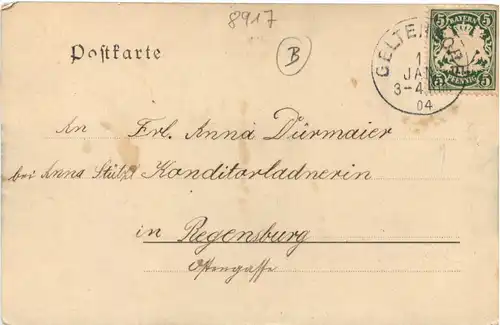 8917
Postkarte
B
BAYERN
5 5
PFENNIG
5 5
GELTE
1
JAN
3-4
04
An Frl. Anna Dürmaier
bei Anna Konditorladnerin
in Regensburg
Ostengasse